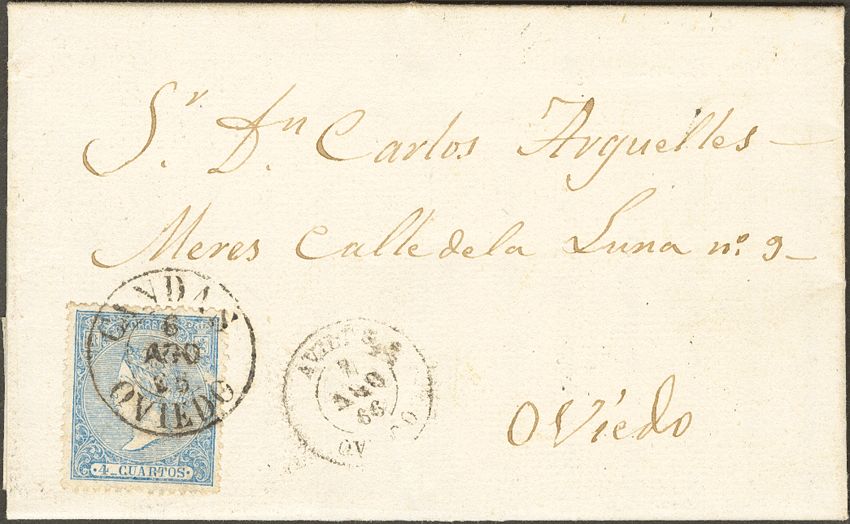 Sr. Dn Carlos Arguelles
Meres Calle de la Luna no. 9
Oviedo
CANDAS
6
AGO
OVIEDO
4_CUARTOS
AGO
66